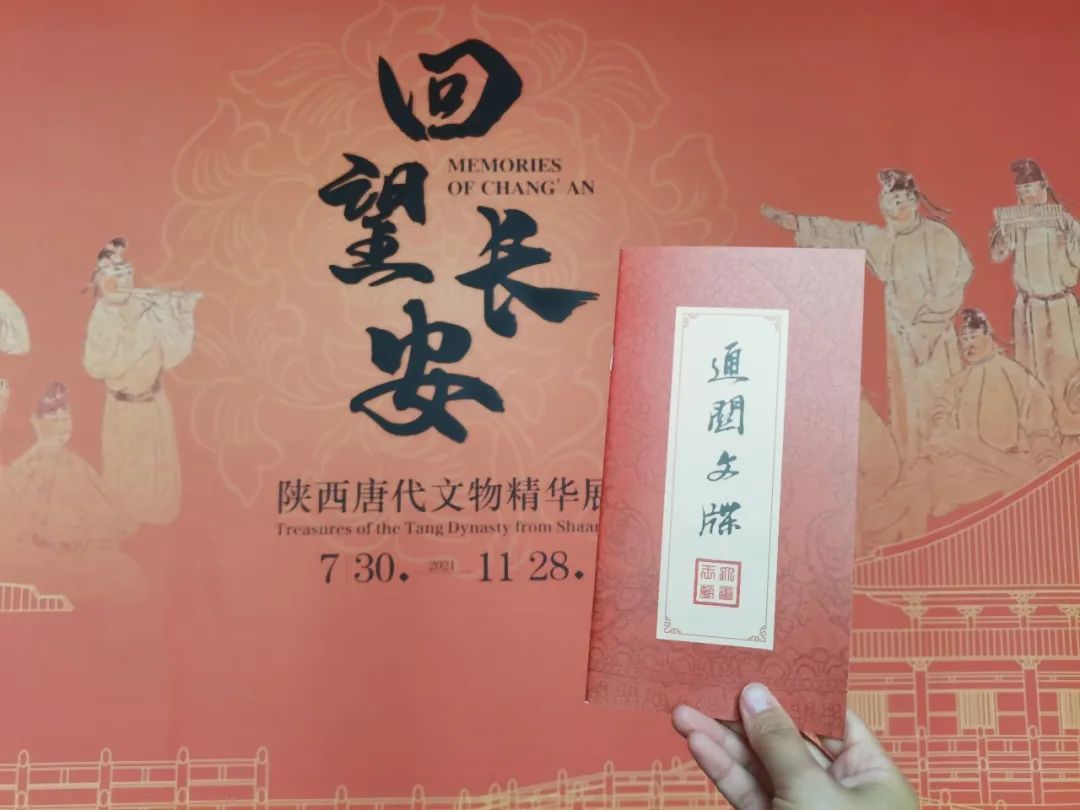 回望长安
MEMORIES
OF CHANG'AN
陕西唐代文物精华展
Treasures of the Tang Dynasty from Shaan
7 30. 2021 11 28.
通關文牒